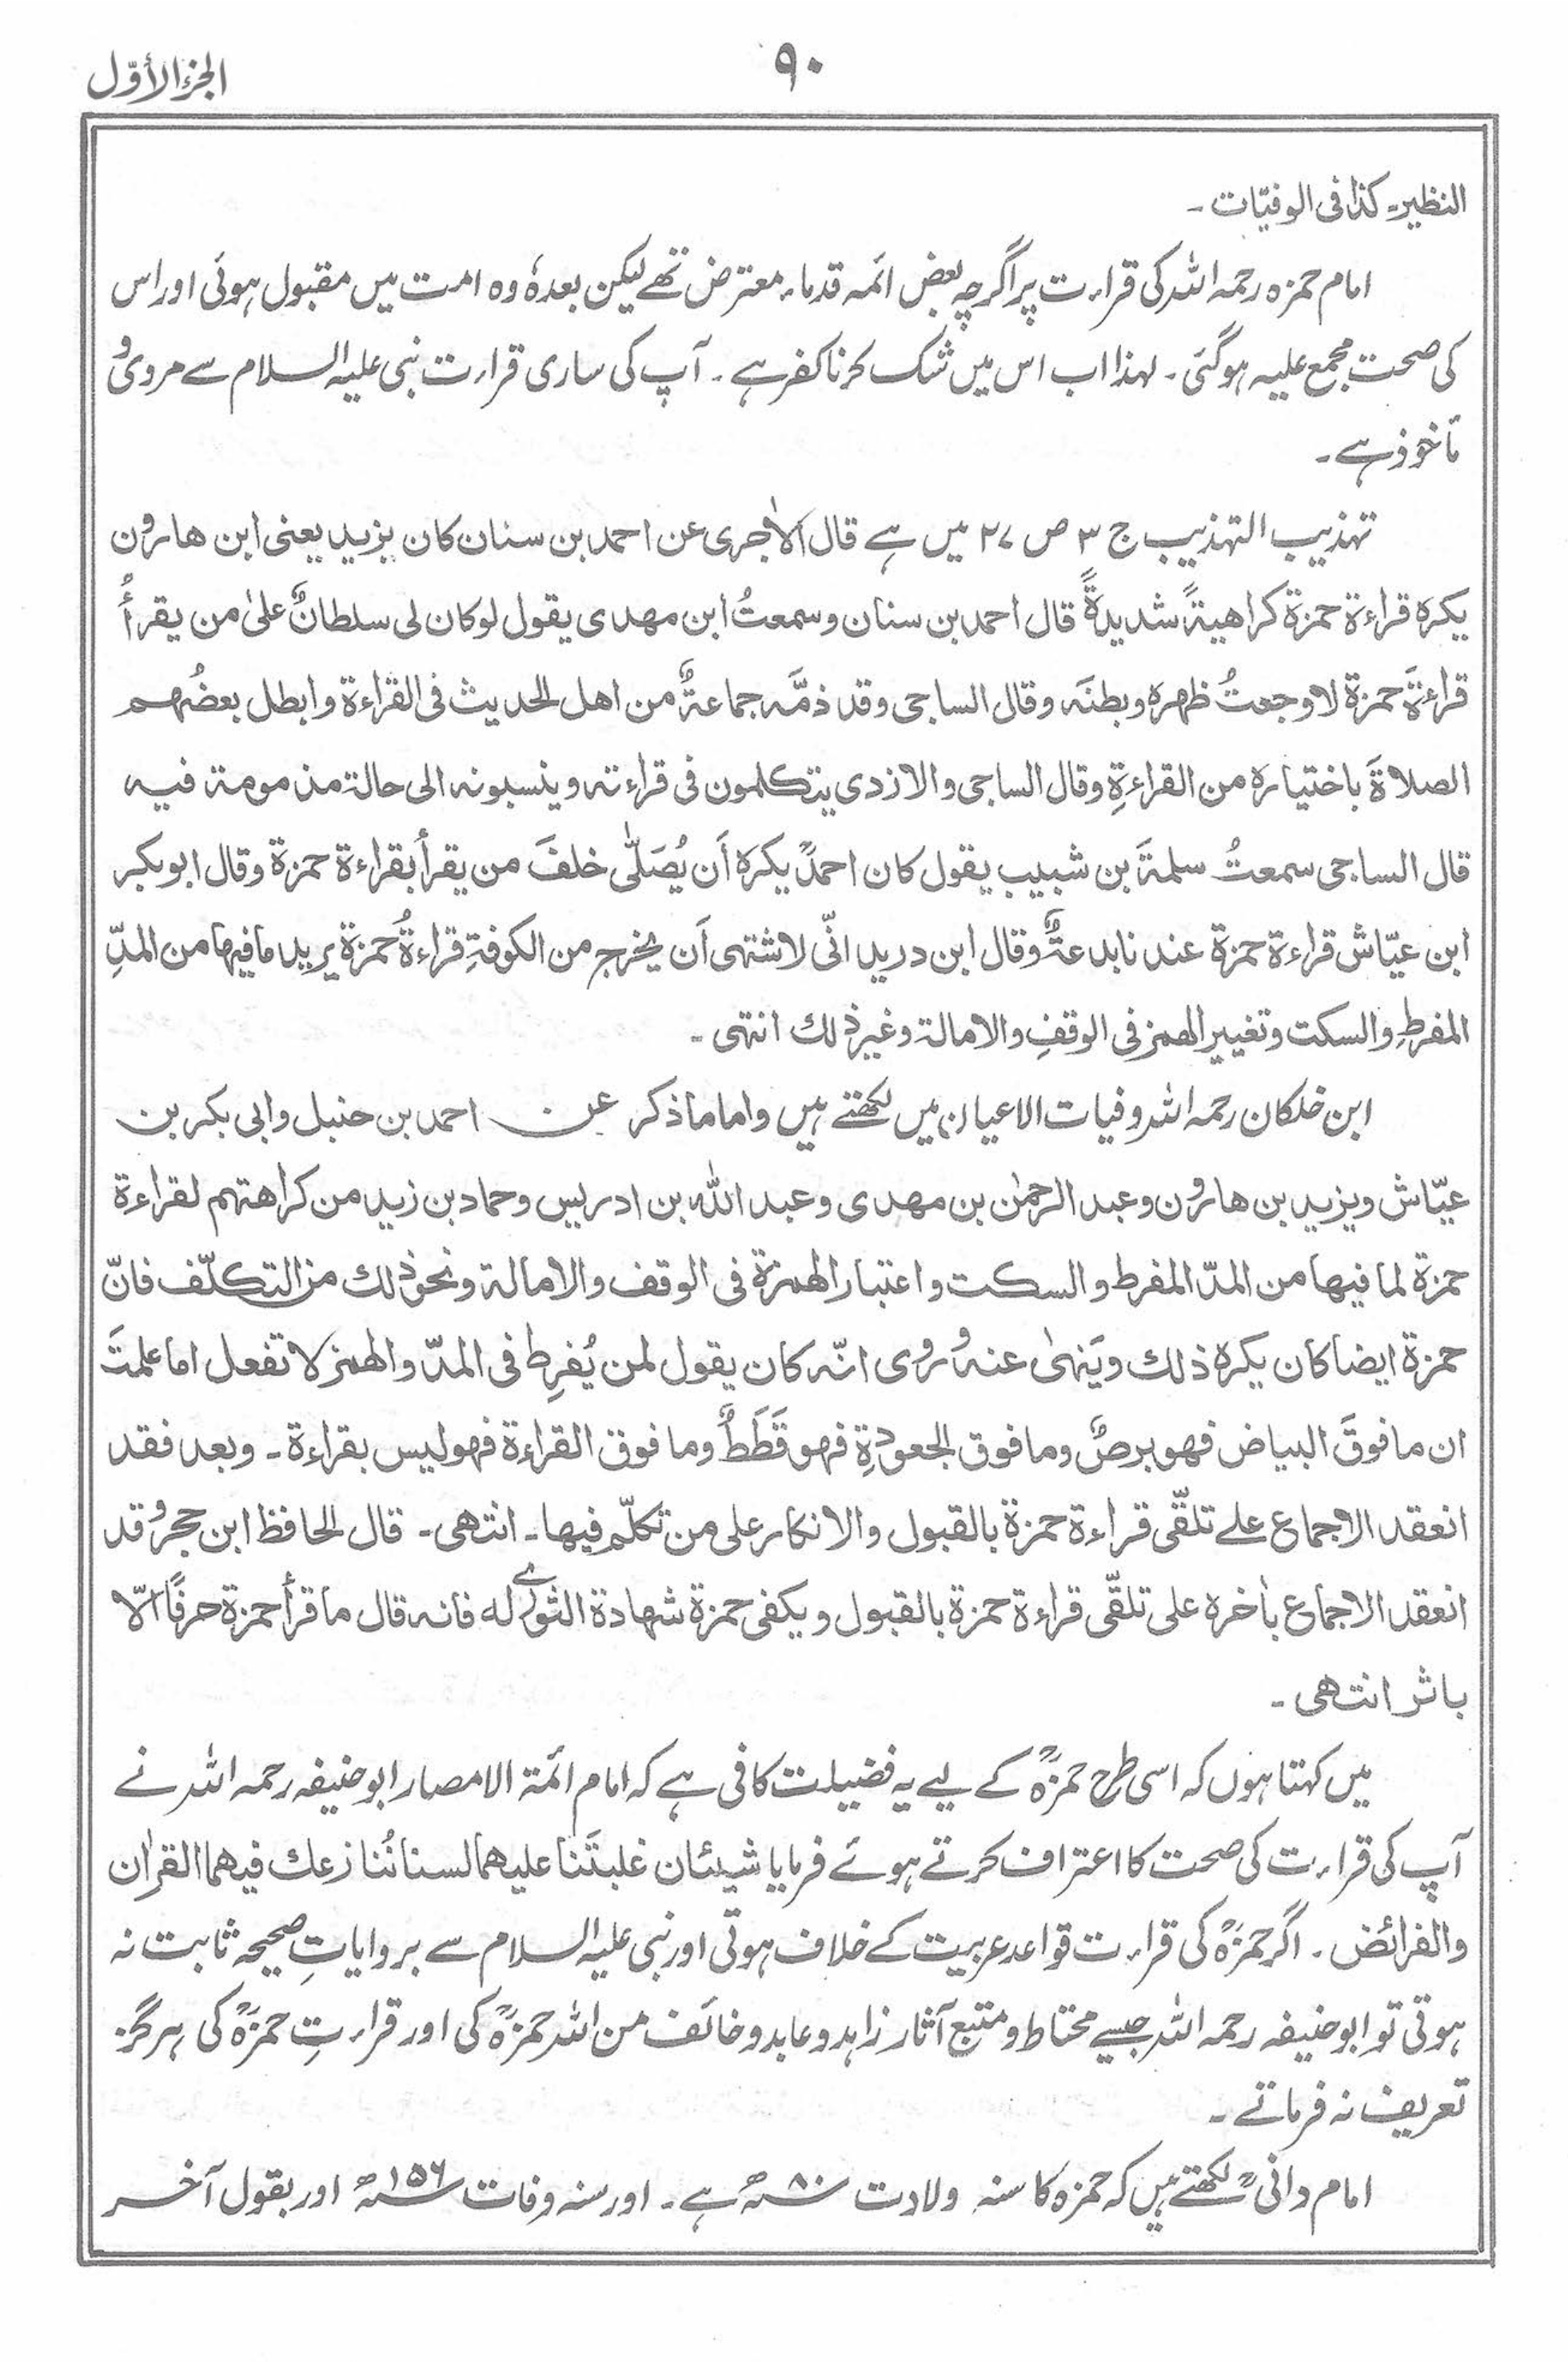 ۹۰
الجزء الأوّل
النظیر۔ کذا فی الوفیّات۔
امام حمزہ رحمہ اللہ کی قراءت پر اگرچہ بعض ائمہ قدماء معترض تھے لیکن بعدہٗ وہ امت میں مقبول ہوئی اور اس
کی صحت مجمع علیہ ہوگئی۔ لہذا اب اس میں شک کرنا کفر ہے۔ آپ کی ساری قراءت نبی علیہ السلام سے مروی و
مأخوذ ہے۔
تہذیب التہذیب ج ۳ ص ۲۷ میں ہے قال الاٰجری عن احمد بن سنان کان یزید یعنی ابن ھارون
یکرہ قراءۃ حمزۃ کراھیۃً شدیدۃً قال احمد بن سنان وسمعتُ ابن مھدی یقول لوکان لی سلطانٌ علیٰ من یقرأُ
قراءۃَ حمزۃ لاوجعتُ ظھرہ وبطنَہ وقال الساجی وقد ذمَّہ جماعۃٌ من اھل الحدیث فی القراءۃ وابطل بعضُھم
الصلاۃَ باختیارہ من القراءۃِ وقال الساجی والازدی یتکلمون فی قراءتہ وینسبونہ الی حالۃ مذمومۃ فیہ
قال الساجی سمعتُ سلمۃَ بن شبیب یقول کان احمدؒ یکرہ اَن یُصَلّٰی خلفَ من یقرأ بقراءۃ حمزۃ وقال ابوبکر
ابن عیّاش قراءۃ حمزۃ عندنا بدعۃٌ وقال ابن درید انّی لاشتھی اَن یخرج من الکوفۃِ قراءۃُ حمزۃ یرید ما فیھا من المدِّ
المفرطِ والسکت وتغییر الھمز فی الوقفِ والامالۃ وغیر ذلك انتھی۔
ابن خلکان رحمہ اللہ وفیات الاعیان میں لکھتے ہیں واما ماذکر عن احمد بن حنبل وابی بکر بن
عیّاش ویزید بن ھارون وعبد الرحمٰن بن مھدی وعبد اللّٰہ بن ادریس وحماد بن زید من کراھتھم لقراءۃ
حمزۃ لما فیھا من المدّ المفرط والسکت واعتبار الھمزۃ فی الوقف والامالۃ ونحو ذلك من التکلّف فانّ
حمزۃ ایضا کان یکرہ ذلك ویَنھیٰ عنہ وروی انّہ کان یقول لمن یُفرِط فی المدّ والھمز لا تفعل اما علمتَ
ان ما فوقَ البیاض فھو برصٌ وما فوق الجعودۃِ فھو قَطَطٌ وما فوق القراءۃ فھو لیس بقراءۃ۔ وبعد فقد
انعقد الاجماع علے تلقّی قراءۃ حمزۃ بالقبول والانکار علی من تکلّم فیھا۔ انتھی۔ قال الحافظ ابن حجر وقد
انعقد الاجماع بأخرہ علی تلقّی قراءۃ حمزۃ بالقبول ویکفی حمزۃ شھادۃ الثوری لہ فانہ قال ما قرأ حمزۃ حرفًا الّا
باثر انتھی۔
میں کہتا ہوں کہ اسی طرح حمزہؒ کے لیے یہ فضیلت کافی ہے کہ امام ائمۃ الامصار ابوحنیفہ رحمہ اللہ نے
آپ کی قراءت کی صحت کا اعتراف کرتے ہوئے فرمایا شیئان غلبتَنا علیھما لسنا نُنازعك فیھما القراٰن
والفرائض۔ اگر حمزہؒ کی قراءت قواعد عربیت کے خلاف ہوتی اور نبی علیہ السلام سے بروایاتِ صحیحہ ثابت نہ
ہوتی تو ابوحنیفہ رحمہ اللہ جیسے محتاط و متبع آثار زاہد و عابد و خائف من اللہ حمزہؒ کی اور قراءتِ حمزہؒ کی ہرگز
تعریف نہ فرماتے۔
امام دانیؒ لکھتے ہیں کہ حمزہ کا سنہ ولادت ۸۰ھ ہے۔ اور سنہ وفات ۱۵۶ھ اور بقول آخر